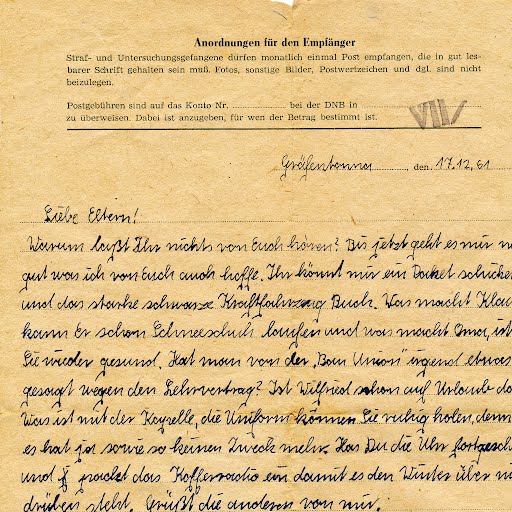 Anordnungen für den Empfänger
Straf- und Untersuchungsgefangene dürfen monatlich einmal Post empfangen, die in gut les-
barer Schrift gehalten sein muß. Fotos, sonstige Bilder, Postwertzeichen und dgl. sind nicht
beizulegen.
Postgebühren sind auf das Konto Nr. bei der DNB in
zu überweisen. Dabei ist anzugeben, für wen der Betrag bestimmt ist.
VII/
Gräfentonna, den 17.12.61
Liebe Eltern!
Warum laßt Ihr nichts von Euch hören? Bis jetzt geht es mir
gut was ich von Euch auch hoffe. Ihr könnt mir ein Paket
und das starke schwarze Buch. Was macht
kann Er schon Schneeschuh laufen und was macht Oma, ist
Sie wieder gesund. Hat man von der „Bau Union" irgend etwas
gesagt wegen den Lehrvertrag? Ist Wilfried schon auf Urlaub
Was ist mit der Kapelle, die Uniform können Sie ruhig holen, denn
es hat ja sowie so keinen Zweck mehr. Has Du die Uhr
und packt das Kofferradio ein damit es den Winter über
drüben steht. Grüßt die anderen von mir.